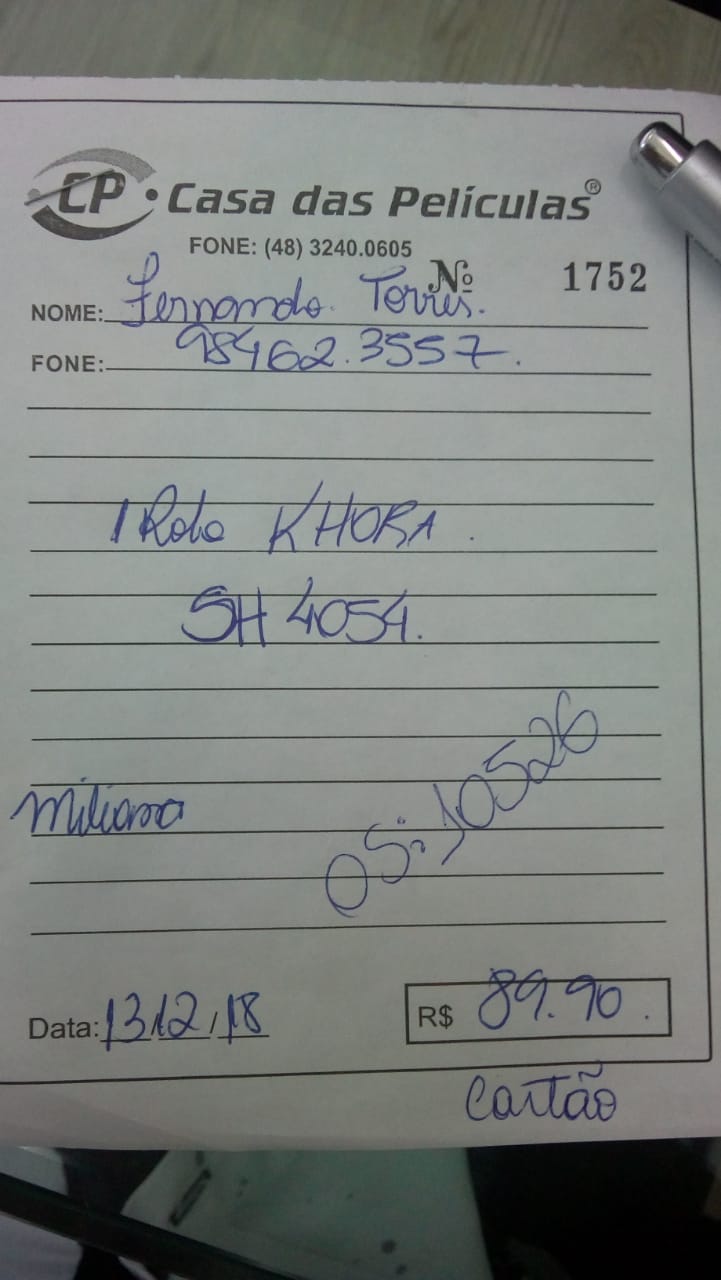 CP • Casa das Películas®
FONE: (48) 3240.0605
Nº 1752
NOME: Fernando Torres.
FONE: 98462.3557.
1 Rolo KHORA.
SH 4054.
OS: 10526
Data: 13/12/18
R$ 89.90.
Cartão